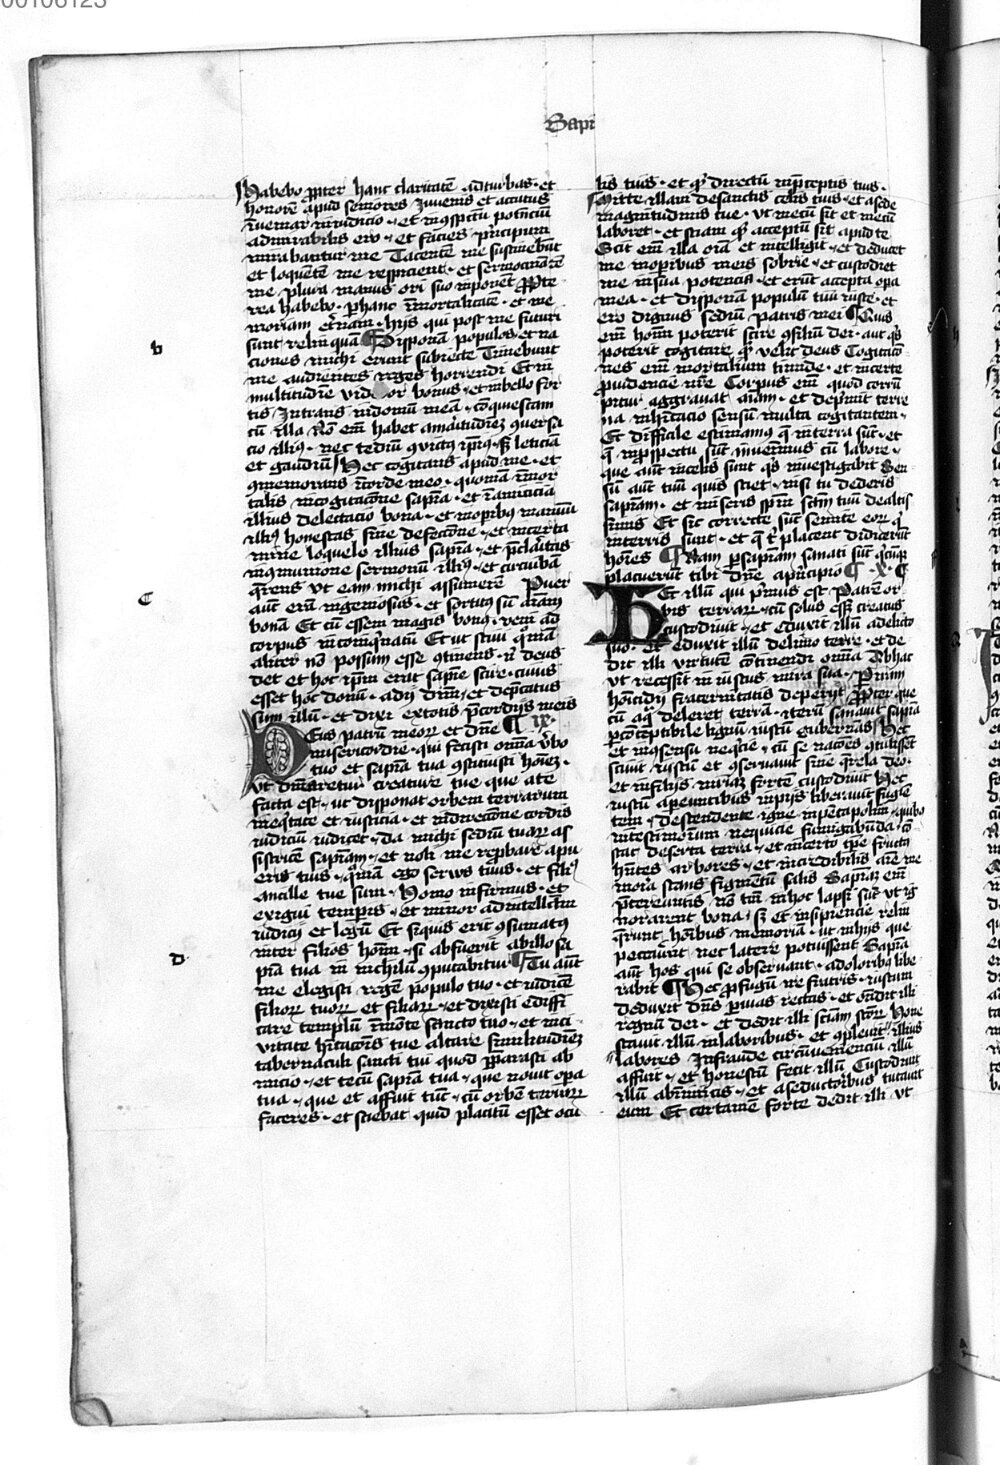 00106123
Sapi
Habebo ꝓpter hanc claritatē ad turbas · et
honorē apud seniores Juvenis et acutus
Inueniar in iudicio · et in ꝯspectu potenciū
admirabilis ero · et facies principum
mirabuntur me Tacentē me sustinebūt
et loquētem me respicient · et sermocinātē
me plura manus ori suo inponēt Propte
rea habebo · per hanc īmortalitatē · et me
moriam et̄nam · hijs qui post me futuri
sunt relinquam Disponā populos · et na
ciones michi erunt subiecte Timebunt
me audientes reges horrendi Et in
multitudine videor bonus · et in bello for
tis Intrans in domū meā · cōquiescam
cū illa Nō em̄ habet amaritudinē ꝯuersa
cio illiꝰ · nec tediū ꝯvictꝰ ipiꝰ · sꝫ leticiā
et gaudiū Hec cogitans apud me · et
ꝯmemorans ī corde meo · quoniā īmor
talis in cogitacōne sapīa · et ī amicicia
illius delectacio bona · et in operibꝰ manuū
illiꝰ honestas sine defectione · et in certa
mine loquele illius sapīa · et p̄claritas
in ꝯmunione sermonū illiꝰ · et circuibā
querens vt eam michi assumerē Puer
aut erā ingeniosus · et sortitꝰ sū aīam
bonā Et cū essem magis bonꝰ · veni ad
corpus incoinquinatū Et ut sciui qm̄
aliter nō possum esse ꝯtinens · nisi deus
det et hoc ipm̄ erat sapīe scire · cuius
esset hoc donū · adij dn̄m · et dep̄catus
sum illū · et dixi ex totis p̄cordijs meis
Deus patrū meorꝝ et dn̄e ¶ ix ·
misericordie · qui fecisti omīa v̄bo
tuo et sapīa tua ꝯstituisti hoīez ·
ut dn̄aretur creature tue que a te
facta est · ut disponat orbem terrarum
in eqitate et iusticia · et in direccione cordis
iudiciū iudicet · da michi sediū tuarꝝ as
sistricē sapīam · et noli me rep̄bare a pu
eris tuis · qm̄ ego servus tuus · et filiꝰ
ancille tue sum · Homo infirmus · et
exigui temporis · et minor ad intellectū
iudicij et legū Et si quis erit ꝯsumatus
inter filios hoīm · si absuerit ab illo sa
pīa tua in nichilū ꝯputabitur Tu aūt
me elegisti regē populo tuo · et iudicē
filiorꝝ tuorꝝ et filiarꝝ · et dixisti ediffi
care templū ī monte sancto tuo · et in ci
vitate habitacōnis tue altare similitudinē
tabernaculi sancti tui quod p̄parasti ab
inicio · et tecū sapīa tua · que novit opa
tua · que et affuit tūc · cū orbē terrarꝝ
faceres · et sciebat quid placitū esset ocu
b
c
d
lis tuis · et qd̄ directū in p̄ceptis tuis ·
Mitte illam de sanctis celis tuis · et a sede
magnitudinis tue · vt mecū sit et mecū
laboret · et sciam qd̄ acceptū sit apud te
Scit em̄ illa oīa et intelligit · et deducet
me in operibus meis sobrie · et custodiet
me in sua potencia · et erūt accepta opa
mea · et disponā populū tuū iuste · et
ero dignus sediū patris mei Quis
em̄ hoīm poterit scire ꝯsiliū dei · aut qis
poterit cogitare qd̄ velit deus Cogitacio
nes em̄ mortalium timide · et incerte
prudencie nr̄e Corpus em̄ quod corrū
pitur aggrauat aīam · et depm̄it terre
na inhitacio sensū multa cogitantem ·
Et difficile estimamꝰ q̄ in terra sūt · et
q̄ in prospectu sūt invenimus cū labore ·
que aūt in celis sunt qis investigabit Sen
sū aūt tuū quis sciet · nisi tu dederis
sapīam · et miseris spm̄ sc̄m tuū de altis
simis Et sic correcte sūt semite eorꝝ q̄
in terris sunt · et q̄ tibi placent didicerūt
hoīes Nam per sapīam sanati sūt qicūqꝫ
placuerūt tibi dn̄e a principio ¶ · x · ¶
Hec illū qui p̄mus est Patrē or
bis terrarꝝ · cū solus esset creatus
custodiuit · et eduxit illū a delicto
suo · et eduxit illū de limo terre · et de
dit illi virtutē cōtinendi omīa Ab hac
ut recessit in iustus in ira sua · Per irā
homicidij fraternitatis deperijt Propter que
cū aqua deleret terrā · iterū sanauit sapīa
per cōtemptibile lignū iustū gubernās Hec
et in ꝯsensu neqicie · cū se nacōnes ꝯtulissēt
sciuit iustū et ꝯseruauit sine q̄rela deo ·
et in filijs mīaz fortē custodiuit Hec
iustū a pereuntibus impijs liberauit fugiē
tem · descendente igne in pentapolim · quibꝰ
in testimonium nequicie fumigabūda cō
stat deserta terra · et incerto tp̄e fructꝰ
hn̄tes arbores · et incredibilis aīe me
moria stans figmentū salis Sapīaz em̄
p̄tereuntes nō tm̄ in hoc lapsi sūt ut ig
norarent bona · sꝫ et insipiencie relin
querunt hoībus memoriā · ut in hijs que
peccauerūt nec latere potuissent Sapīa
aūt hos qui se observant · a doloribꝰ libe
rabit Hec profugū ire fratris · iustum
deduxit dn̄s per vias rectas · et ondit illi
regnū dei · et dedit illi sciam sctorꝝ Hone
stauit illū in laboribus · et ꝯpleuit illius
labores In fraude circūveniencium illū
affuit · et honestū fecit illū Custodiuit
illū ab inimicis · et a seductoribus tutauit
eum Et certamē forte dedit illi vt